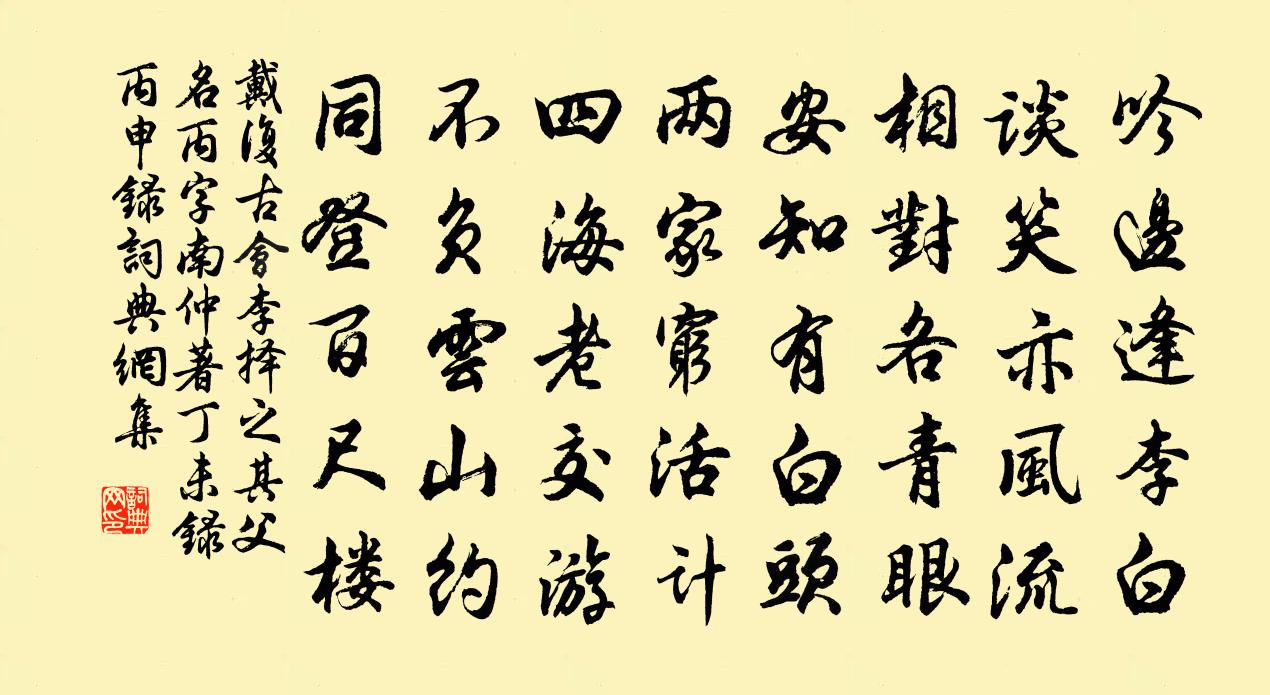 吟邊逢李白
談笑亦風流
相對各青眼
安知有白頭
两家窮活计
四海老交游
不負雲山約
同登百尺楼
戴復古會李择之其父
名丙字南仲著丁未録
丙申録詞典網集
詞典
网印